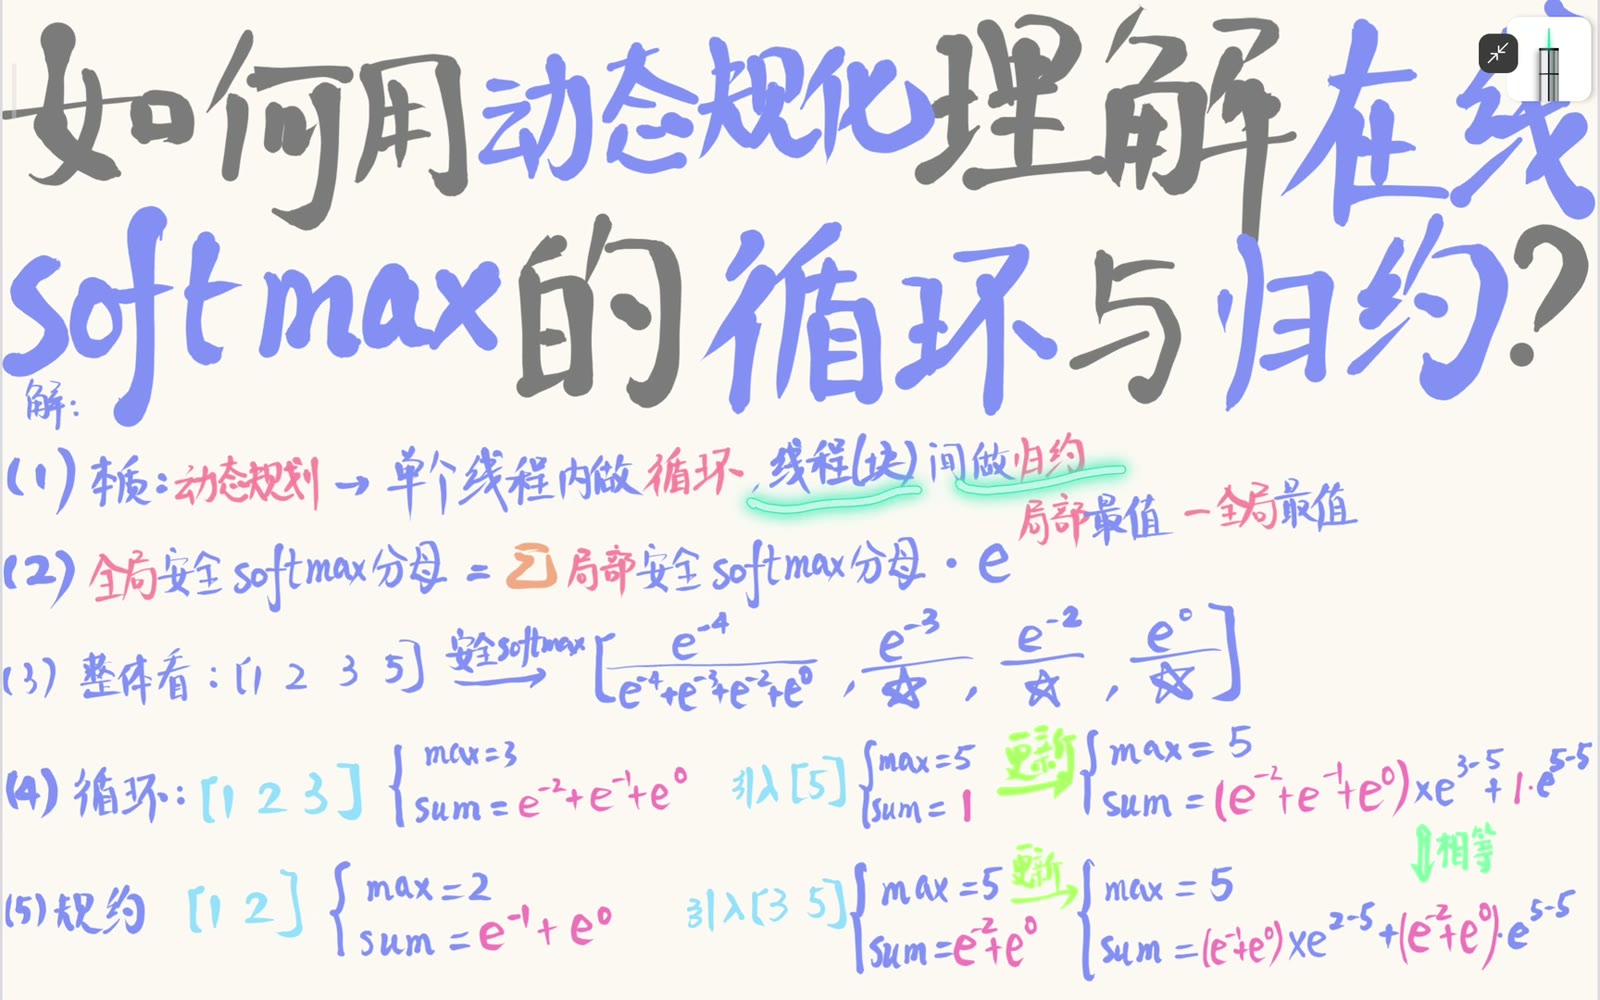 如何用动态规化理解在线
softmax的循环与归约?
解:
(1) 本质:动态规划 → 单个线程内做循环,线程(块)间做归约
(2) 全局安全softmax分母 = Σ 局部安全softmax分母 · e^(局部最值 - 全局最值)
(3) 整体看:[1 2 3 5] 安全softmax→ [e^-4/(e^-4+e^-3+e^-2+e^0), e^-3/☆, e^-2/☆, e^0/☆]
(4) 循环:[1 2 3] { max=3 引入[5] { max=5 更新→ { max=5
sum=e^-2+e^-1+e^0 sum=1 sum=(e^-2+e^-1+e^0)×e^3-5+1·e^5-5
⇓相等
(5) 规约 [1 2] { max=2 引入[3 5] { max=5 更新→ { max=5
sum=e^-1+e^0 sum=e^-2+e^0 sum=(e^-1+e^0)×e^2-5+(e^-2+e^0)·e^5-5